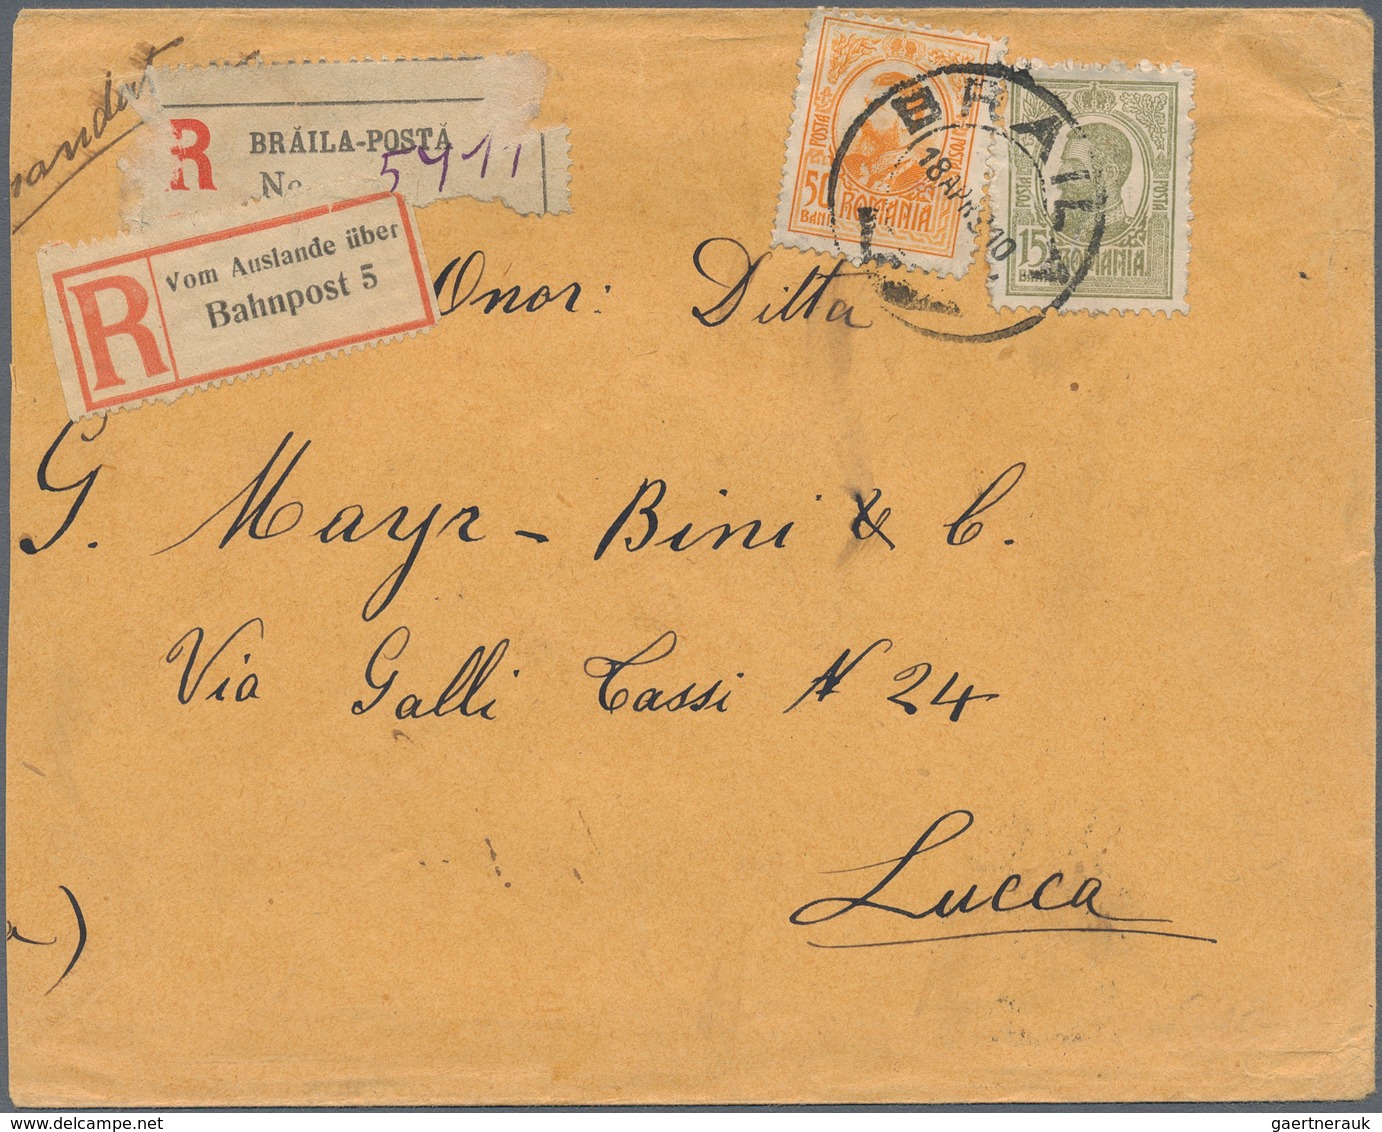 R BRĂILA-POSTĂ
No 5911
R Vom Auslande über
Bahnpost 5
POSTA POSTA
50
BANI ROMANIA
POSTA POSTA
15
BANI ROMANIA
BRAILA
18 APR 910
Onor: Ditta
G. Mayr - Bini & C.
Via Galli Tassi N 24
Lucca
a)
delcampe.net
gaertnerauk